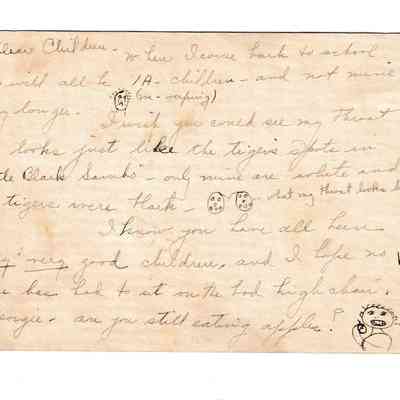 Dear Children - When I come back to school
will all be 1A - children - and not mine
longer. (me - weeping)
I wish you could see my throat
looks just like the tigers spots in
Black Sambo" - only mine are white and
tigers were black - what my throat looks
I know you have all been
very good children and I hope no
has had to sit on the bad high chair.
are you still eating apples?